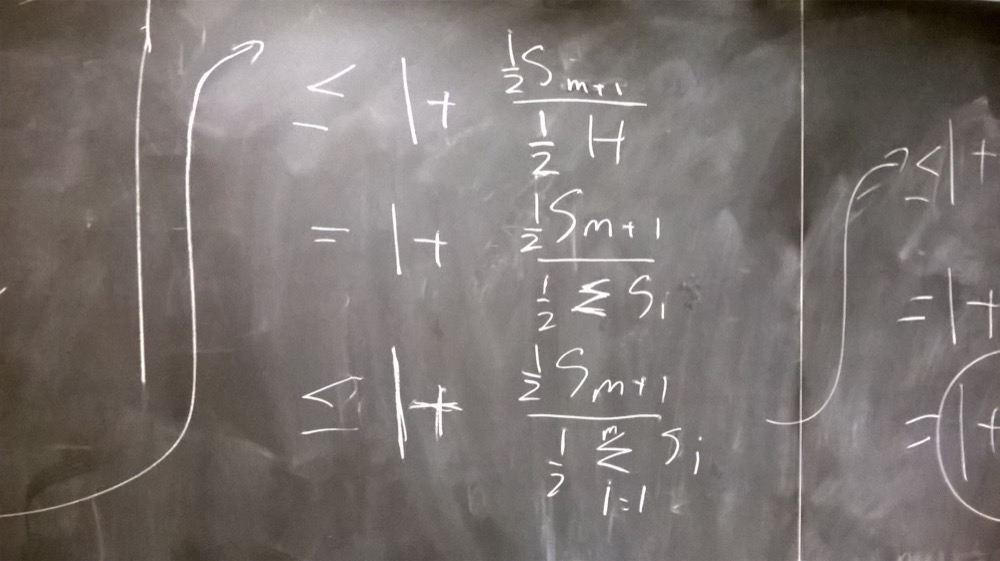 ≤ 1 + (½ S_{m+1}) / (½ H)
= 1 + (½ S_{m+1}) / (½ Σ S_i)
≤ 1 + (½ S_{m+1}) / (½ Σ_{i=1}^{m} S_i)
≤ 1 +
= 1 +
= 1 +